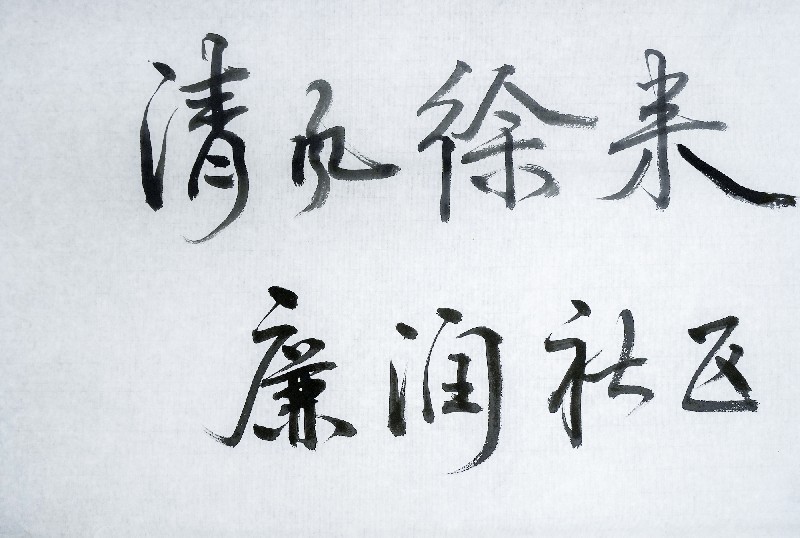 清风徐来
廉润社区